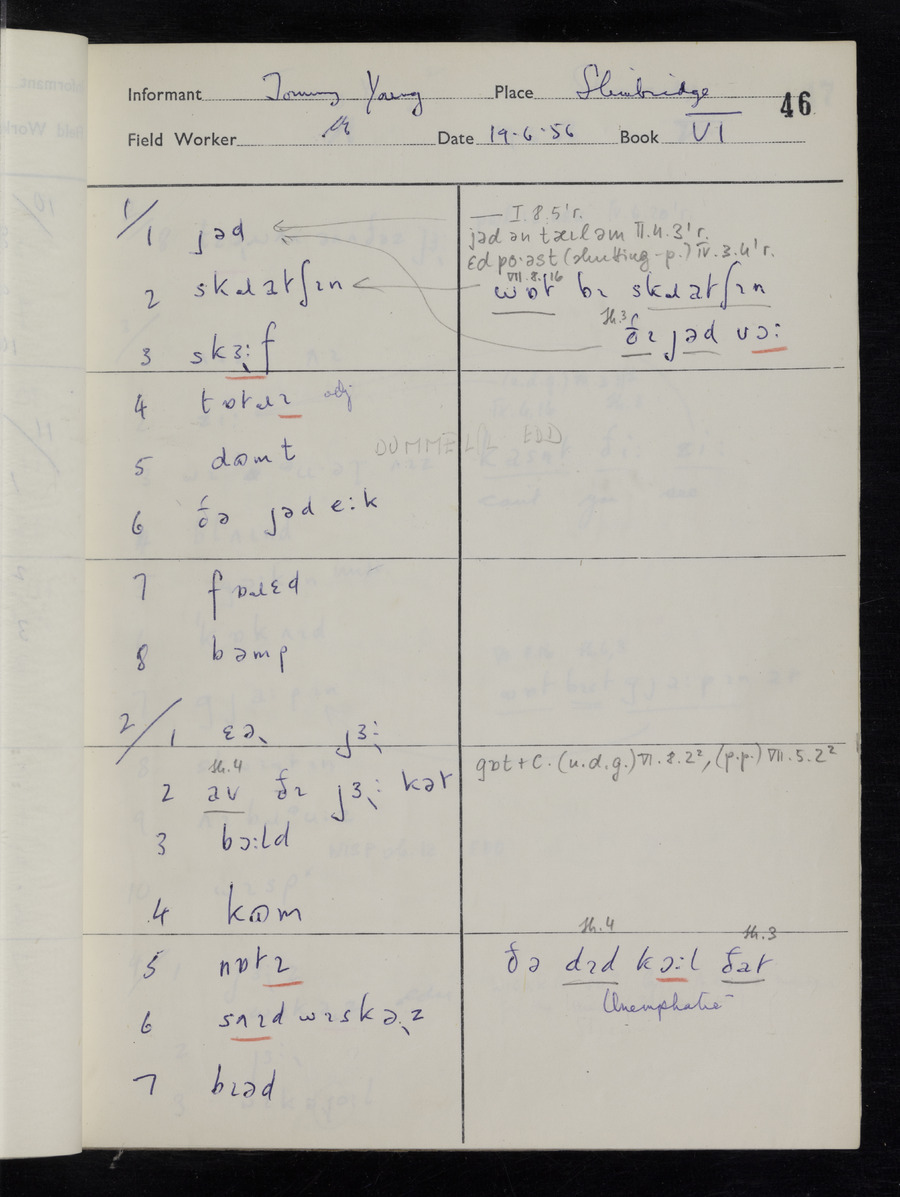 Informant Tommy Young Place Slimbridge 46
Field Worker Date 19·6·56 Book VI
1/1 jəd
— I.8.5'r.
jəd ən tæɪləm II.4.3'r.
ɛd po·əst (shutting-p.) IV.3.4'r.
VII.8.16
2 skɹatʃɪn
wɒt bɪ skɹatʃɪn
sh.3
ðɪ jəd vɔː
3 skɜːf
4 tɒtɹɪ adj
5 dəmt
DUMMEL EDD
6 ðə jəd eːk
7
8 bəmp
2/1 ɛə jɜː
sh.4
2 av ðɪ jɜː kət
gɒt + C. (u.d.g.) VI.2.2², (p.p.) VII.5.2²
3 bɔːld
4 kɷm
5 nɒtɪ
sh.4 sh.3
ðə dɪd kɔːl ðat
6 snɪd wɪskəz
Unemphatic
7 bɪəd